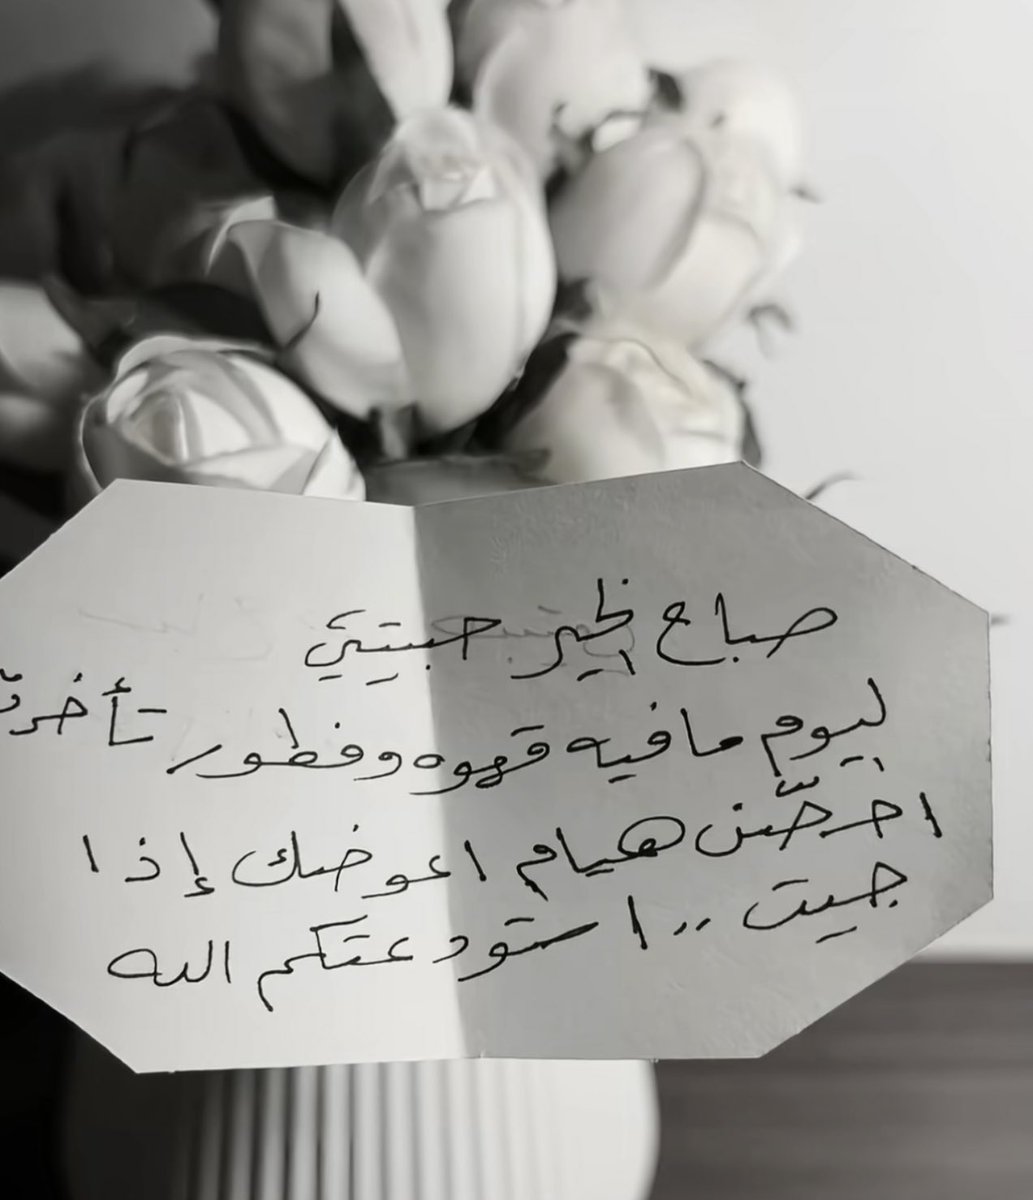 صباح لخير حبيبتي
ليوم مافيه قهوه وفطور تأخرت
احضّن هيام اعوضك إذا
جيت .. استودعتكم الله